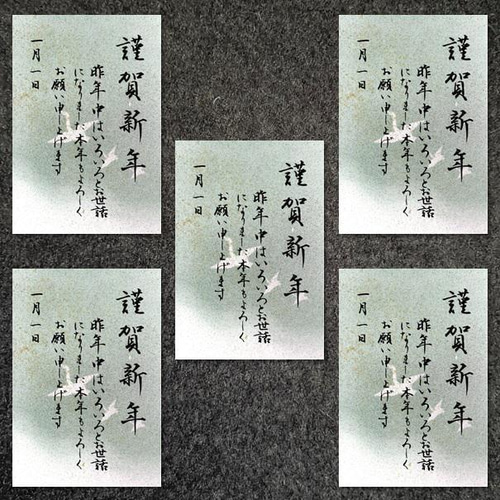 謹賀新年
昨年中はいろいろとお世話
になりました本年もよろしく
お願い申し上げます
一月一日
謹賀新年
昨年中はいろいろとお世話
になりました本年もよろしく
お願い申し上げます
一月一日
謹賀新年
昨年中はいろいろとお世話
になりました本年もよろしく
お願い申し上げます
一月一日
謹賀新年
昨年中はいろいろとお世話
になりました本年もよろしく
お願い申し上げます
一月一日
謹賀新年
昨年中はいろいろとお世話
になりました本年もよろしく
お願い申し上げます
一月一日